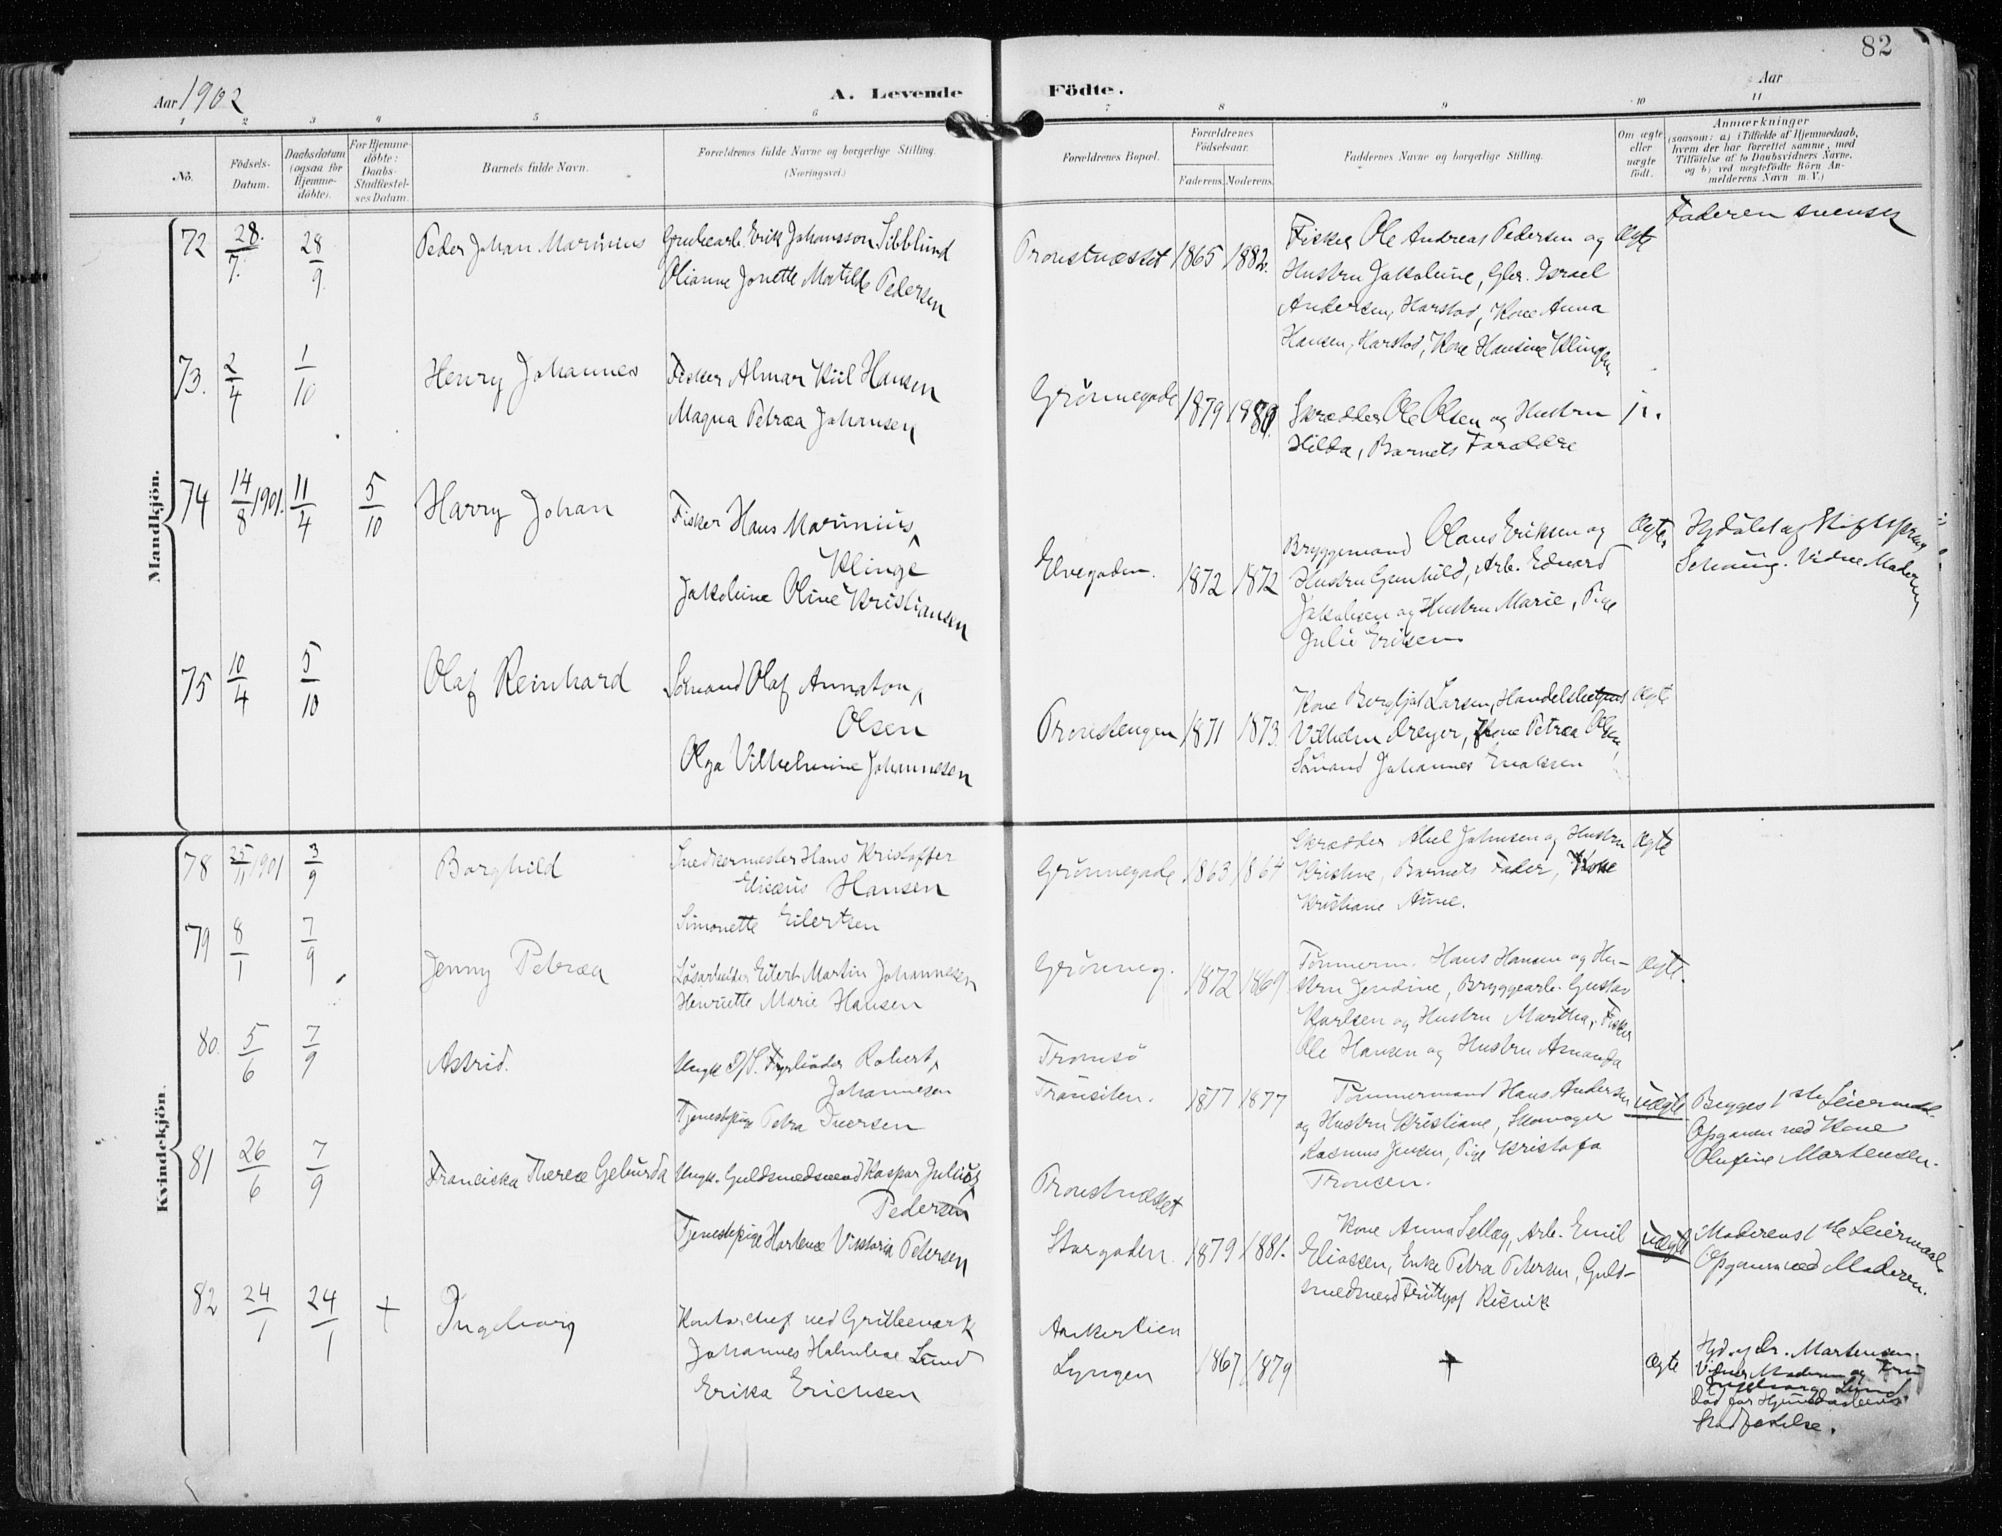 82
Aar 1902
A. Levende
Födte.
Aar
1 2 3 4 5 6 7 8 9 10 11
No.
Födsels-Datum.
Daabsdatum (ogsaa for Hjemmedöbte).
For Hjemmedöbte: Daabs-Stadfæstelses Datum.
Barnets fulde Navn.
Forældrenes fulde Navne og borgerlige Stilling.
(Næringsvei.)
Forældrenes Bopæl.
Forældrenes Födselsaar.
Faderens. Moderens.
Faddernes Navne og borgerlige Stilling.
Om ægte eller uægte födt.
Anmærkninger
(saasom: a) i Tilfælde af Hjemmedaab,
hvem der har forrettet samme, med
Tilföielse af to Daabsvidners Navne,
og b) ved uægtefödte Börn Anmelderens Navn m. V.)
Mandkjön.
72 28/7. 28/9 Peder Johan Marinius
Grubearb. Erik Johansson Sibblund
Olianne Jonette Matilde Pedersen
Pronstnæsset 1865 1882.
Fisker Ole Andreas Pedersen og
Hustru Jakobine, Gbr. Israel
Andersen, Harstad, Kone Anna
Hansen, Harstad, Kone Hansine Klinge
Ægte
Faderen svensk
73. 2/4 1/10 Henry Johannes
Fisker Almar Kiil Hansen
Magna Petræa Johansen
Grønnegade 1879
Skrædder Ole Olsen og Hustru
Hilda, Barnets Forældre
74 14/8 1901. 11/4 5/10 Harry Johan
Fisker Hans Marinius
Klinge
Jakobine Oline Kristiansen
Elvegaden. 1872 1872
Bryggemand Olaus Eriksen og
Hustru Gunhild, Arb. Edvard
Jakobsen og Hustru Marie, Pige
Julie Eriksen
Ægte
Hjdøbt af Stiftsprov
Schøning. Vidne Moderen
75 10/4 5/10 Olaf Reinhard
Sømand Olaf Annaton
Olsen
Olga Vilhelmine Johannesen
Pronstengen 1871 1873.
Kone Bergljot Larsen, Handelsbetjent
Vilhelm Dreyer, Kone Petræa Olsen,
Sømand Johannes Enoksen
Ægte
Kvindekjön.
78 25/11 1901 3/9 Borghild
Snedkermester Hans Kristoffer
Elisæus Hansen
Simonette Eilertsen
Grønnegade 1863 1864
Skrædder Abel Johnsen og Hustru
Kristine, Barnets Fader, Kone
Kristiane Aune.
Ægte
79 8/1 7/9 Jenny Petræa
Løsarbeider Eilert Martin Johannesen
Henriette Marie Hansen
Grønneg. 1872 1869
Tømmerm. Hans Hansen og Hu-
stru Jendine, Bryggearb. Gustav
Karlsen og Hustru Martha, Fisker
Ole Hansen og Hustru Amanda
Ægte.
80. 5/6 7/9 Astrid.
Ungk. D/S. Fyrbøder Robert
Johannesen
Tjenestepige Petra Iversen
Tromsø
1877 1877
Tømmermand Hans Andersen
og Hustru Kristiane, Skomager
Rasmus Jensen, Pige Kristofa
Tronsen.
Uægte
Begges 1ste Leiermaal.
Opgaven ved Kone
Olufine Martensen.
81 26/6 7/9 Franciska Therese Geburda
Ungk. Guldsmedsvend Kaspar Julius
Pedersen
Tjenestepige Hartense Viktoria Petersen
Pronstnæsset
Storgaden. 1879 1881.
Kone Anna Selläg, Arb. Emil
Eliassen, Enke Petra Petersen, Guld-
smedsvend Frithjof Risvik
Uægte
Moderens 1ste Leiermaal.
Opgaven ved Moderen.
82 24/1 24/1 + Ingeborg
Kontorchef ved Grubeværk
Johannes Holmboe Lund
Erika Erichsen
Ankerlien
Lyngen 1867 1879
+
Ægte
Hjd. af Dr. Martensen.
Vidner Moderen og Fru
Ingeborg Lund
Død før Hjemmedaabens
Stadfæstelse.